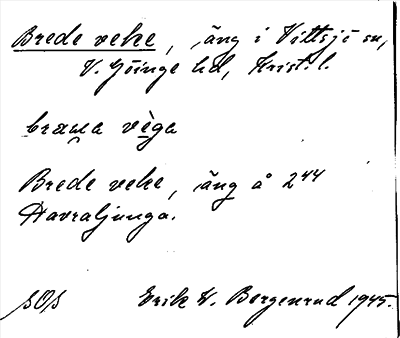 Brede veke, äng i Vittsjö sn,
V. Göinge hd, Krist. l.
vèga
Brede veke, äng å 2⁴⁴
Havraljunga.
SOS Erik W. Borgenrud 1945.